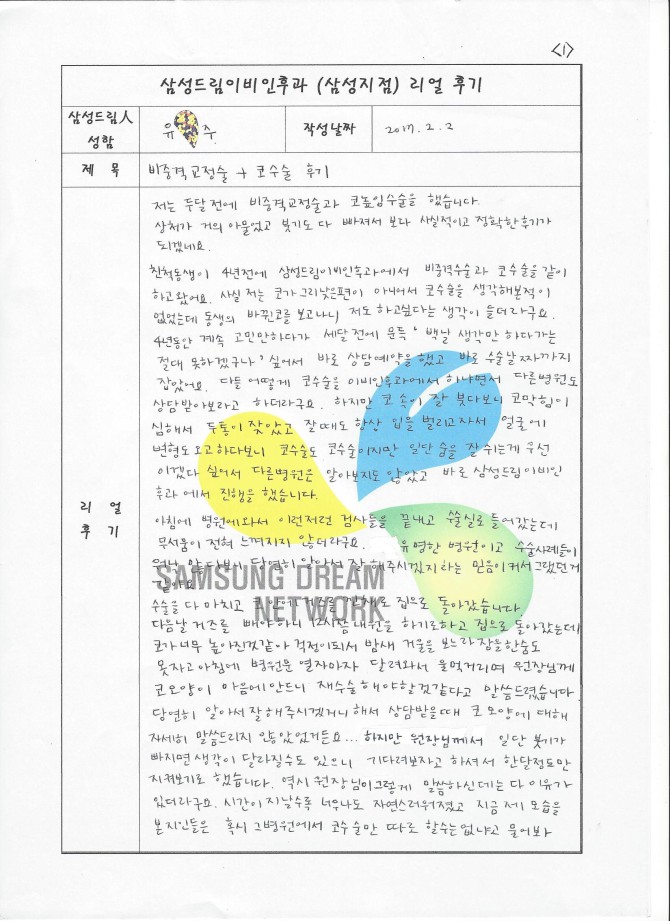 <1>
삼성드림이비인후과 (삼성지점) 리얼 후기
삼성드림人 성함
유 주
작성날짜
2017. 2. 2
제 목
비중격교정술 + 코수술 후기
리 얼
후 기
저는 두달전에 비중격교정술과 코높임수술을 했습니다.
상처가 거의 아물었고 붓기도 다 빠져서 보다 사실적이고 정확한후기가
되겠네요.
친척동생이 4년전에 삼성드림이비인후과에서 비중격수술과 코수술을 같이
하고왔어요. 사실 저는 코가 그리낮은편이 아니어서 코수술을 생각해본적이
없었는데 동생의 바뀐코를 보고나니 저도 하고싶다는 생각이 들더라구요.
4년동안 계속 고민만하다가 세달전에 문득 ' 백날 생각만 하다가는
절대 못하겠구나' 싶어서 바로 상담예약을 했고 바로 수술날짜까지
잡았어요. 다들 어떻게 코수술을 이비인후과에서 하냐면서 다른병원도
상담받아보라고 하더라구요. 하지만 코 속이 잘 붓다보니 코막힘이
심해서 두통이 잦았고 잘때도 항상 입을 벌리고자서 얼굴에
변형도오고하다보니 코수술도 코수술이지만 일단 숨을 잘 쉬는게 우선
이겠다 싶어서 다른병원은 알아보지도 않았고 바로 삼성드림이비인
후과 에서 진행을 했습니다.
아침에 병원에와서 이런저런 검사들을 끝내고 수술실로 들어갔는데
무서움이 전혀 느껴지지 않더라구요. 유명한 병원이고 수술사례들이
워낙 많다보니 당연히 알아서 잘 해주시겠지 하는 믿음이 커서 그랬던거
같아요
수술을 다 마치고 코안에 거즈를 한채로 집으로 돌아갔습니다.
다음날 거즈를 빼야하니 12시쯤 내원을 하기로하고 집으로 돌아갔는데
코가너무 높아진것같아 걱정이되서 밤새 거울을 보느라 잠을한숨도
못자고 아침에 병원문 열자마자 달려와서 울먹거리며 원장님께
코모양이 마음에안드니 재수술해야할것같다고 말씀드렸습니다
당연히 알아서잘해주시겠거니 해서 상담받을때 코모양에 대해
자세히 말씀드리지 않았었거든요... 하지만 원장님께서 일단 붓기가
빠지면생각이 달라질수도 있으니 기다려보자고 하셔서 한달정도만
지켜보기로 했습니다. 역시 원장님이그렇게 말씀하신데는 다 이유가
있더라구요. 시간이지날수록 너무나도 자연스러워졌고 지금 제 모습을
본 지인들은 혹시 그병원에서 코수술만 따로 할수는없냐고 물어봐
SAMSUNG DREAM
NETWORK